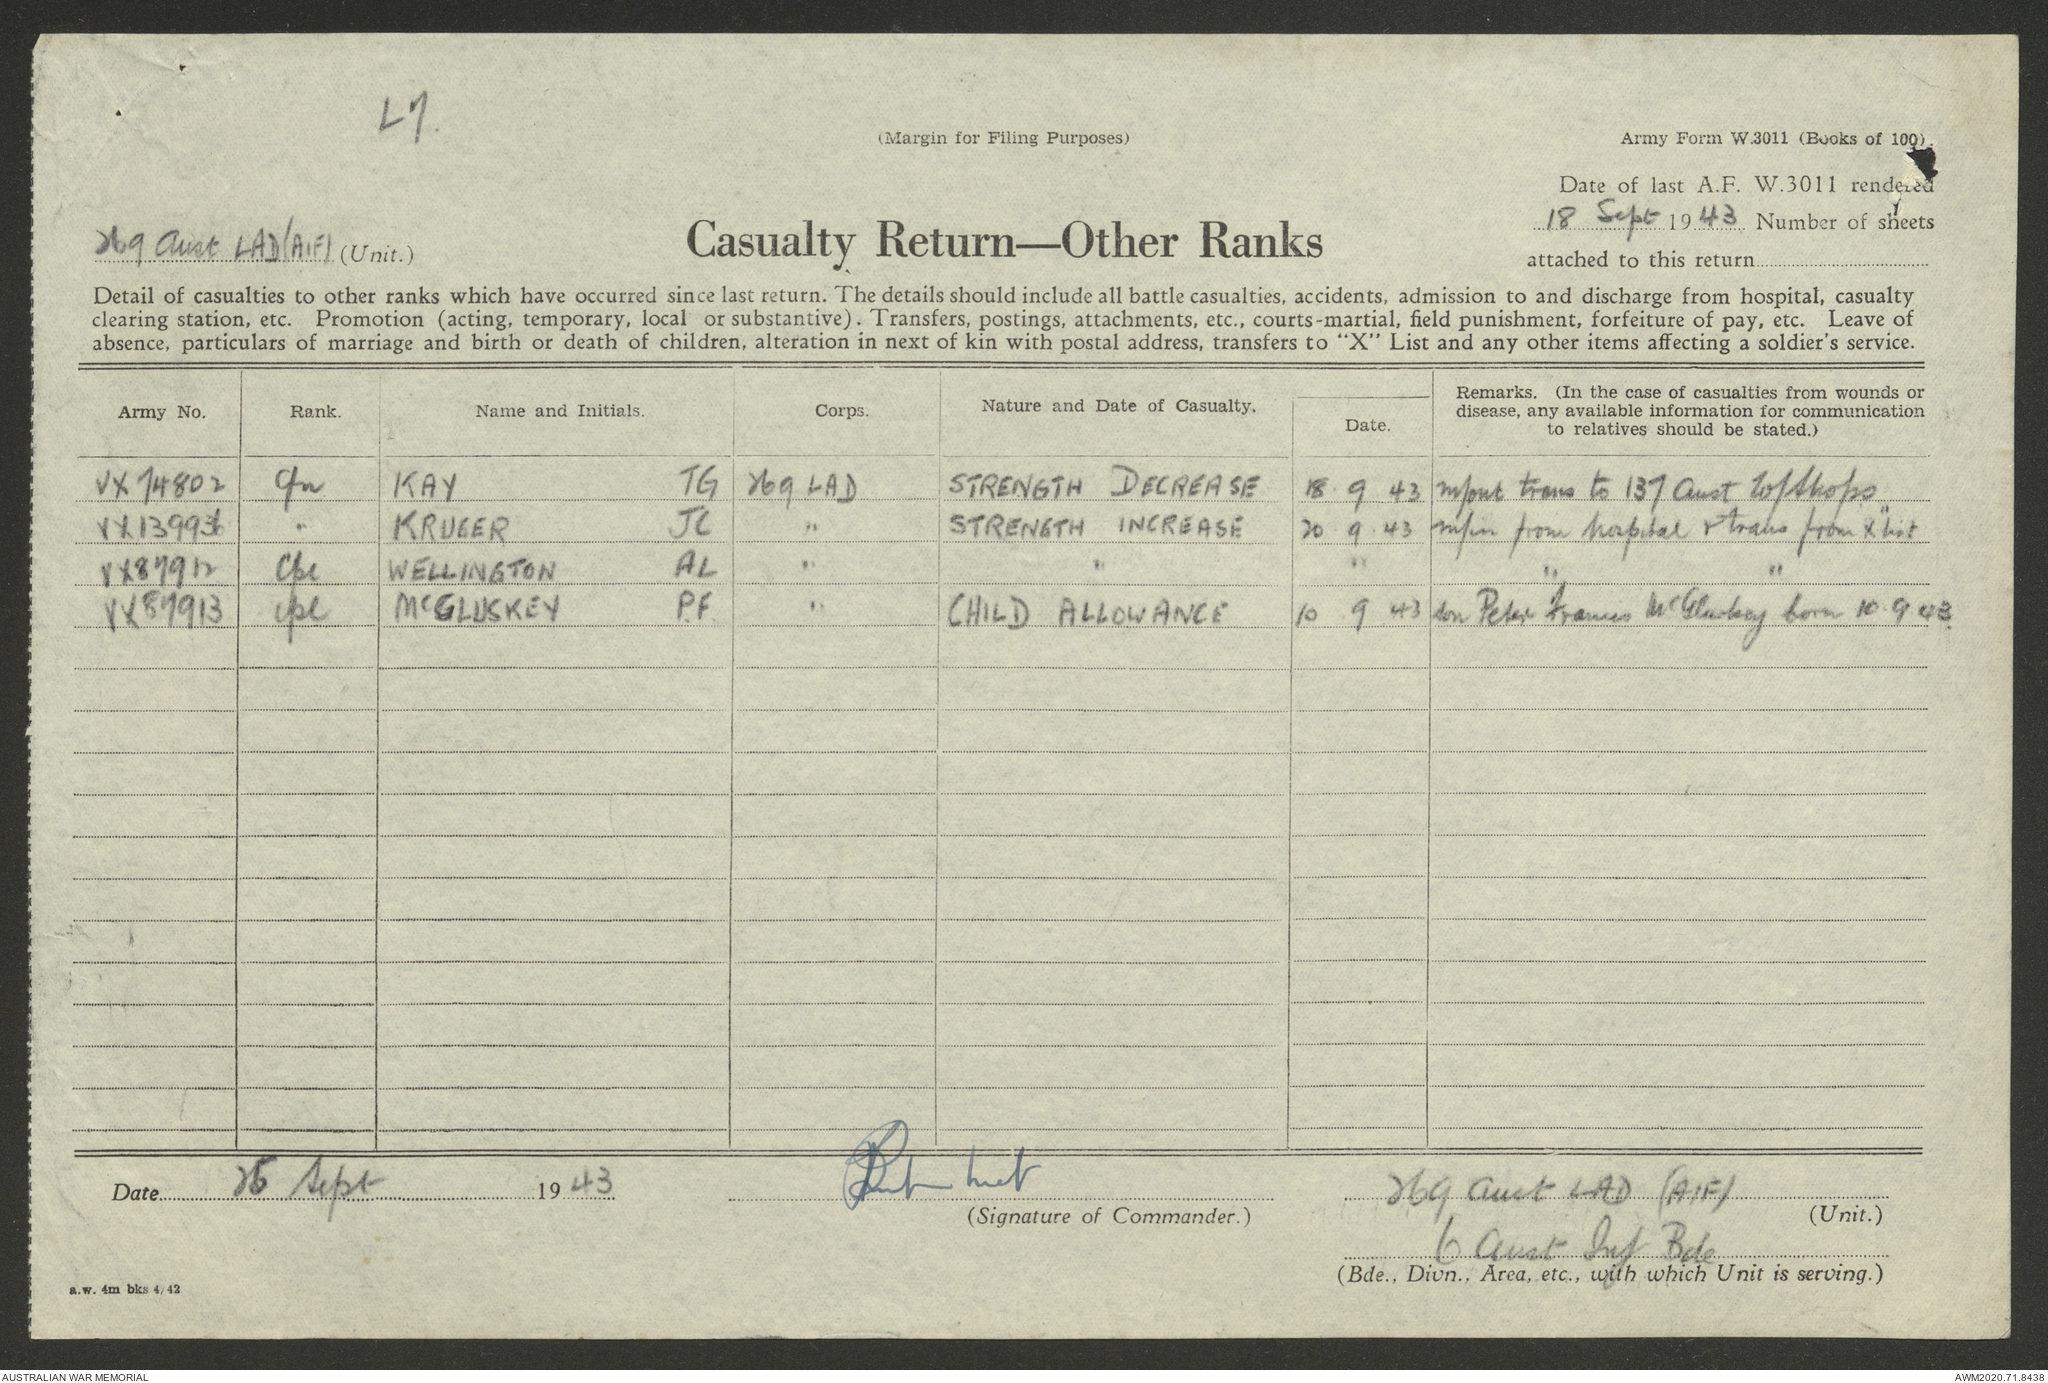 L7.
(Margin for Filing Purposes)
Army Form W.3011 (Books of 100).
Date of last A.F. W.3011 rendered
18 Sept 1943 Number of sheets
attached to this return
269 Aust LAD (AIF) (Unit.)
Casualty Return—Other Ranks
Detail of casualties to other ranks which have occurred since last return. The details should include all battle casualties, accidents, admission to and discharge from hospital, casualty
clearing station, etc. Promotion (acting, temporary, local or substantive). Transfers, postings, attachments, etc., courts-martial, field punishment, forfeiture of pay, etc. Leave of
absence, particulars of marriage and birth or death of children, alteration in next of kin with postal address, transfers to "X" List and any other items affecting a soldier's service.
Army No. Rank. Name and Initials. Corps. Nature and Date of Casualty. Date. Remarks. (In the case of casualties from wounds or
disease, any available information for communication
to relatives should be stated.)
VX74802 Cfn KAY TG 269 LAD STRENGTH DECREASE 18 9 43 m/out trans to 137 Aust
VX13993 " KRUGER JC " STRENGTH INCREASE 20 9 43 m/in from hospital & trans from X list
VX87912 Cpl WELLINGTON AL " " " " "
VX87913 Cpl McGLUSKEY P.F. " CHILD ALLOWANCE 10 9 43 son Peter Francis McGluskey born 10.9.43
Date 25 Sept 1943
(Signature of Commander.)
269 Aust LAD (AIF)
(Unit.)
6 Aust Inf Bde
(Bde., Divn., Area, etc., with which Unit is serving.)
a.w. 4m bks 4/42
AUSTRALIAN WAR MEMORIAL
AWM2020.71.8438